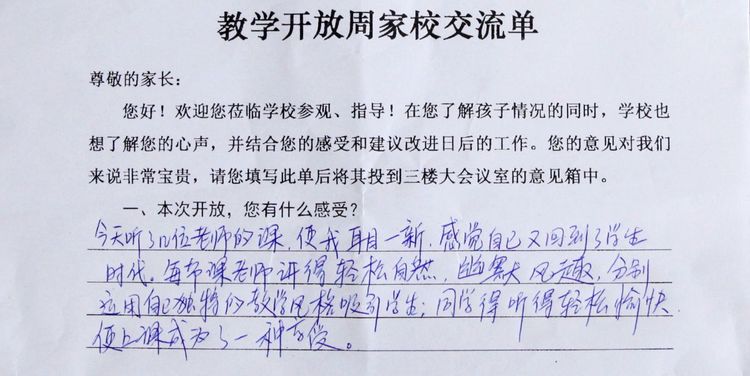 教学开放周家校交流单
尊敬的家长:
您好!欢迎您莅临学校参观、指导!在您了解孩子情况的同时,学校也
想了解您的心声,并结合您的感受和建议改进日后的工作。您的意见对我们
来说非常宝贵,请您填写此单后将其投到三楼大会议室的意见箱中。
一、本次开放,您有什么感受?
今天听了几位老师的课,使我耳目一新,感觉自己又回到了学生
时代。每节课老师讲得轻松自然,幽默风趣,分别
运用自己独特的教学风格吸引学生;同学得听得轻松愉快
使上课成为了一种享受。